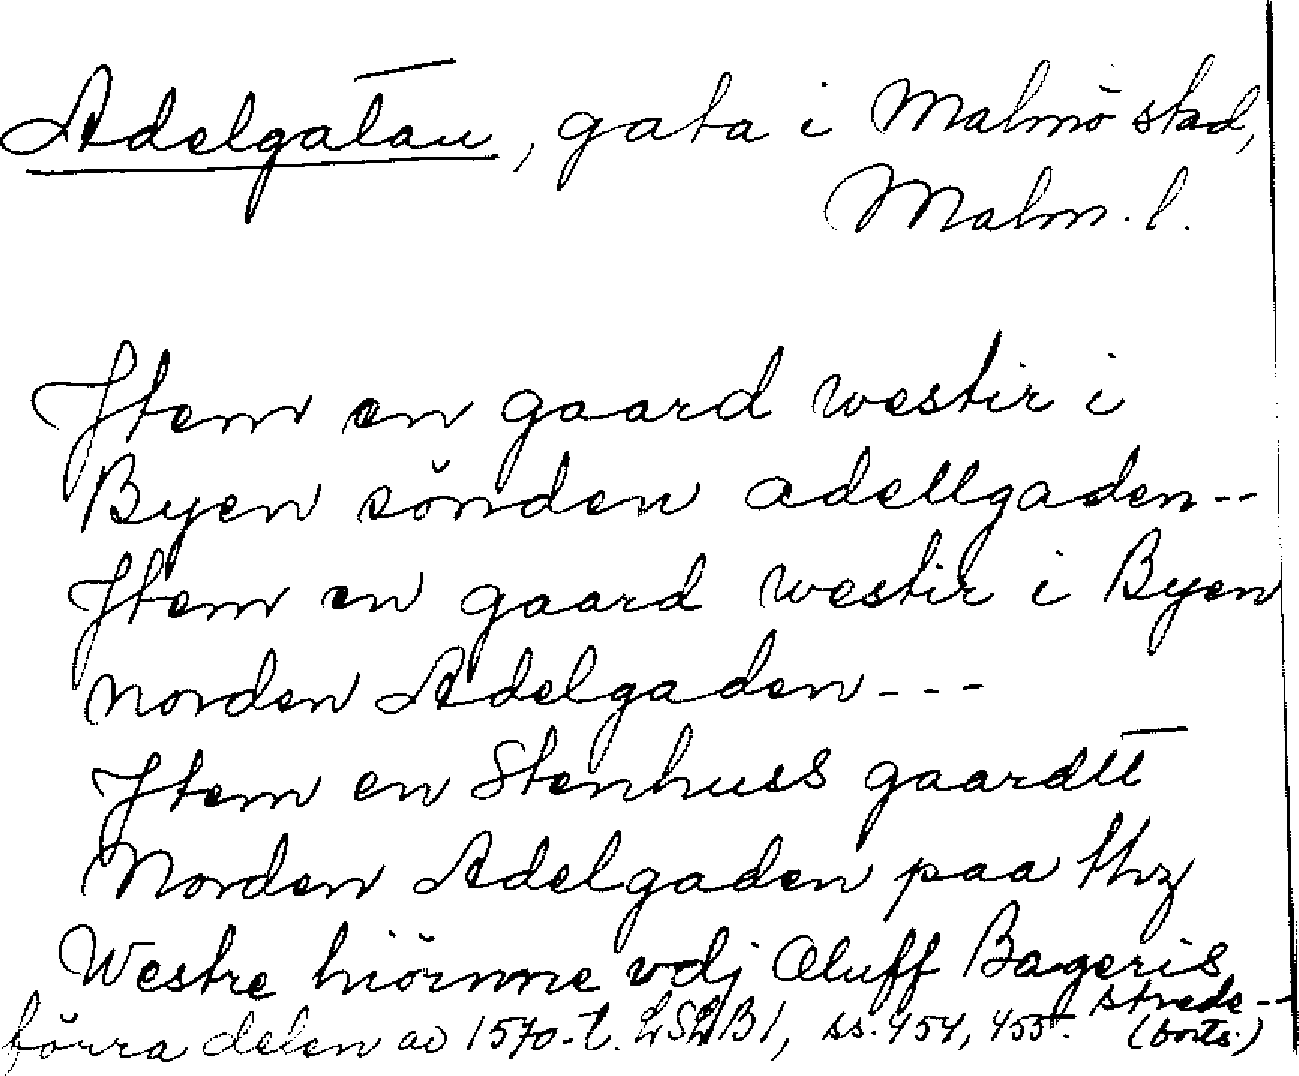 Adelgatan, gata i Malmö stad,
Malm. l.
Jtem en gaard westir i
Byen sönden adellgaden--
Jtem en gaard westir i Byen
norden Adelgaden---
Jtem en Stenhuss gaardtt
Norden Adelgaden paa thz
Westre hiörnne vdj Oluff Bageris
strede--
förra delen av 1570-t. LSLB1, ss. 454, 455.
(forts.)